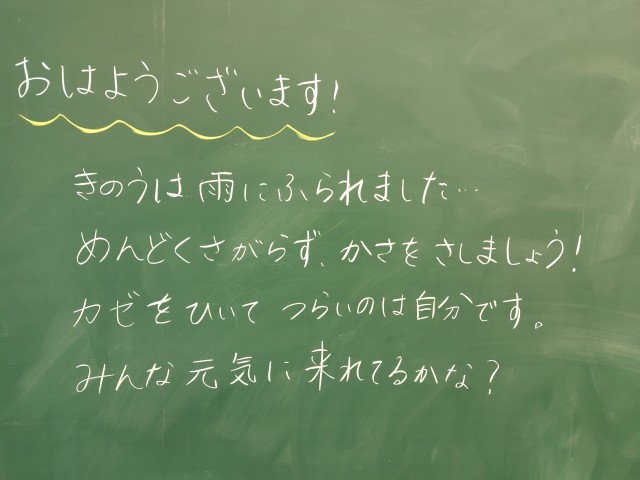 おはようございます!
きのうは雨にふられました…
めんどくさがらず、かさをさしましょう!
カゼをひいてつらいのは自分です。
みんな元気に来れてるかな?